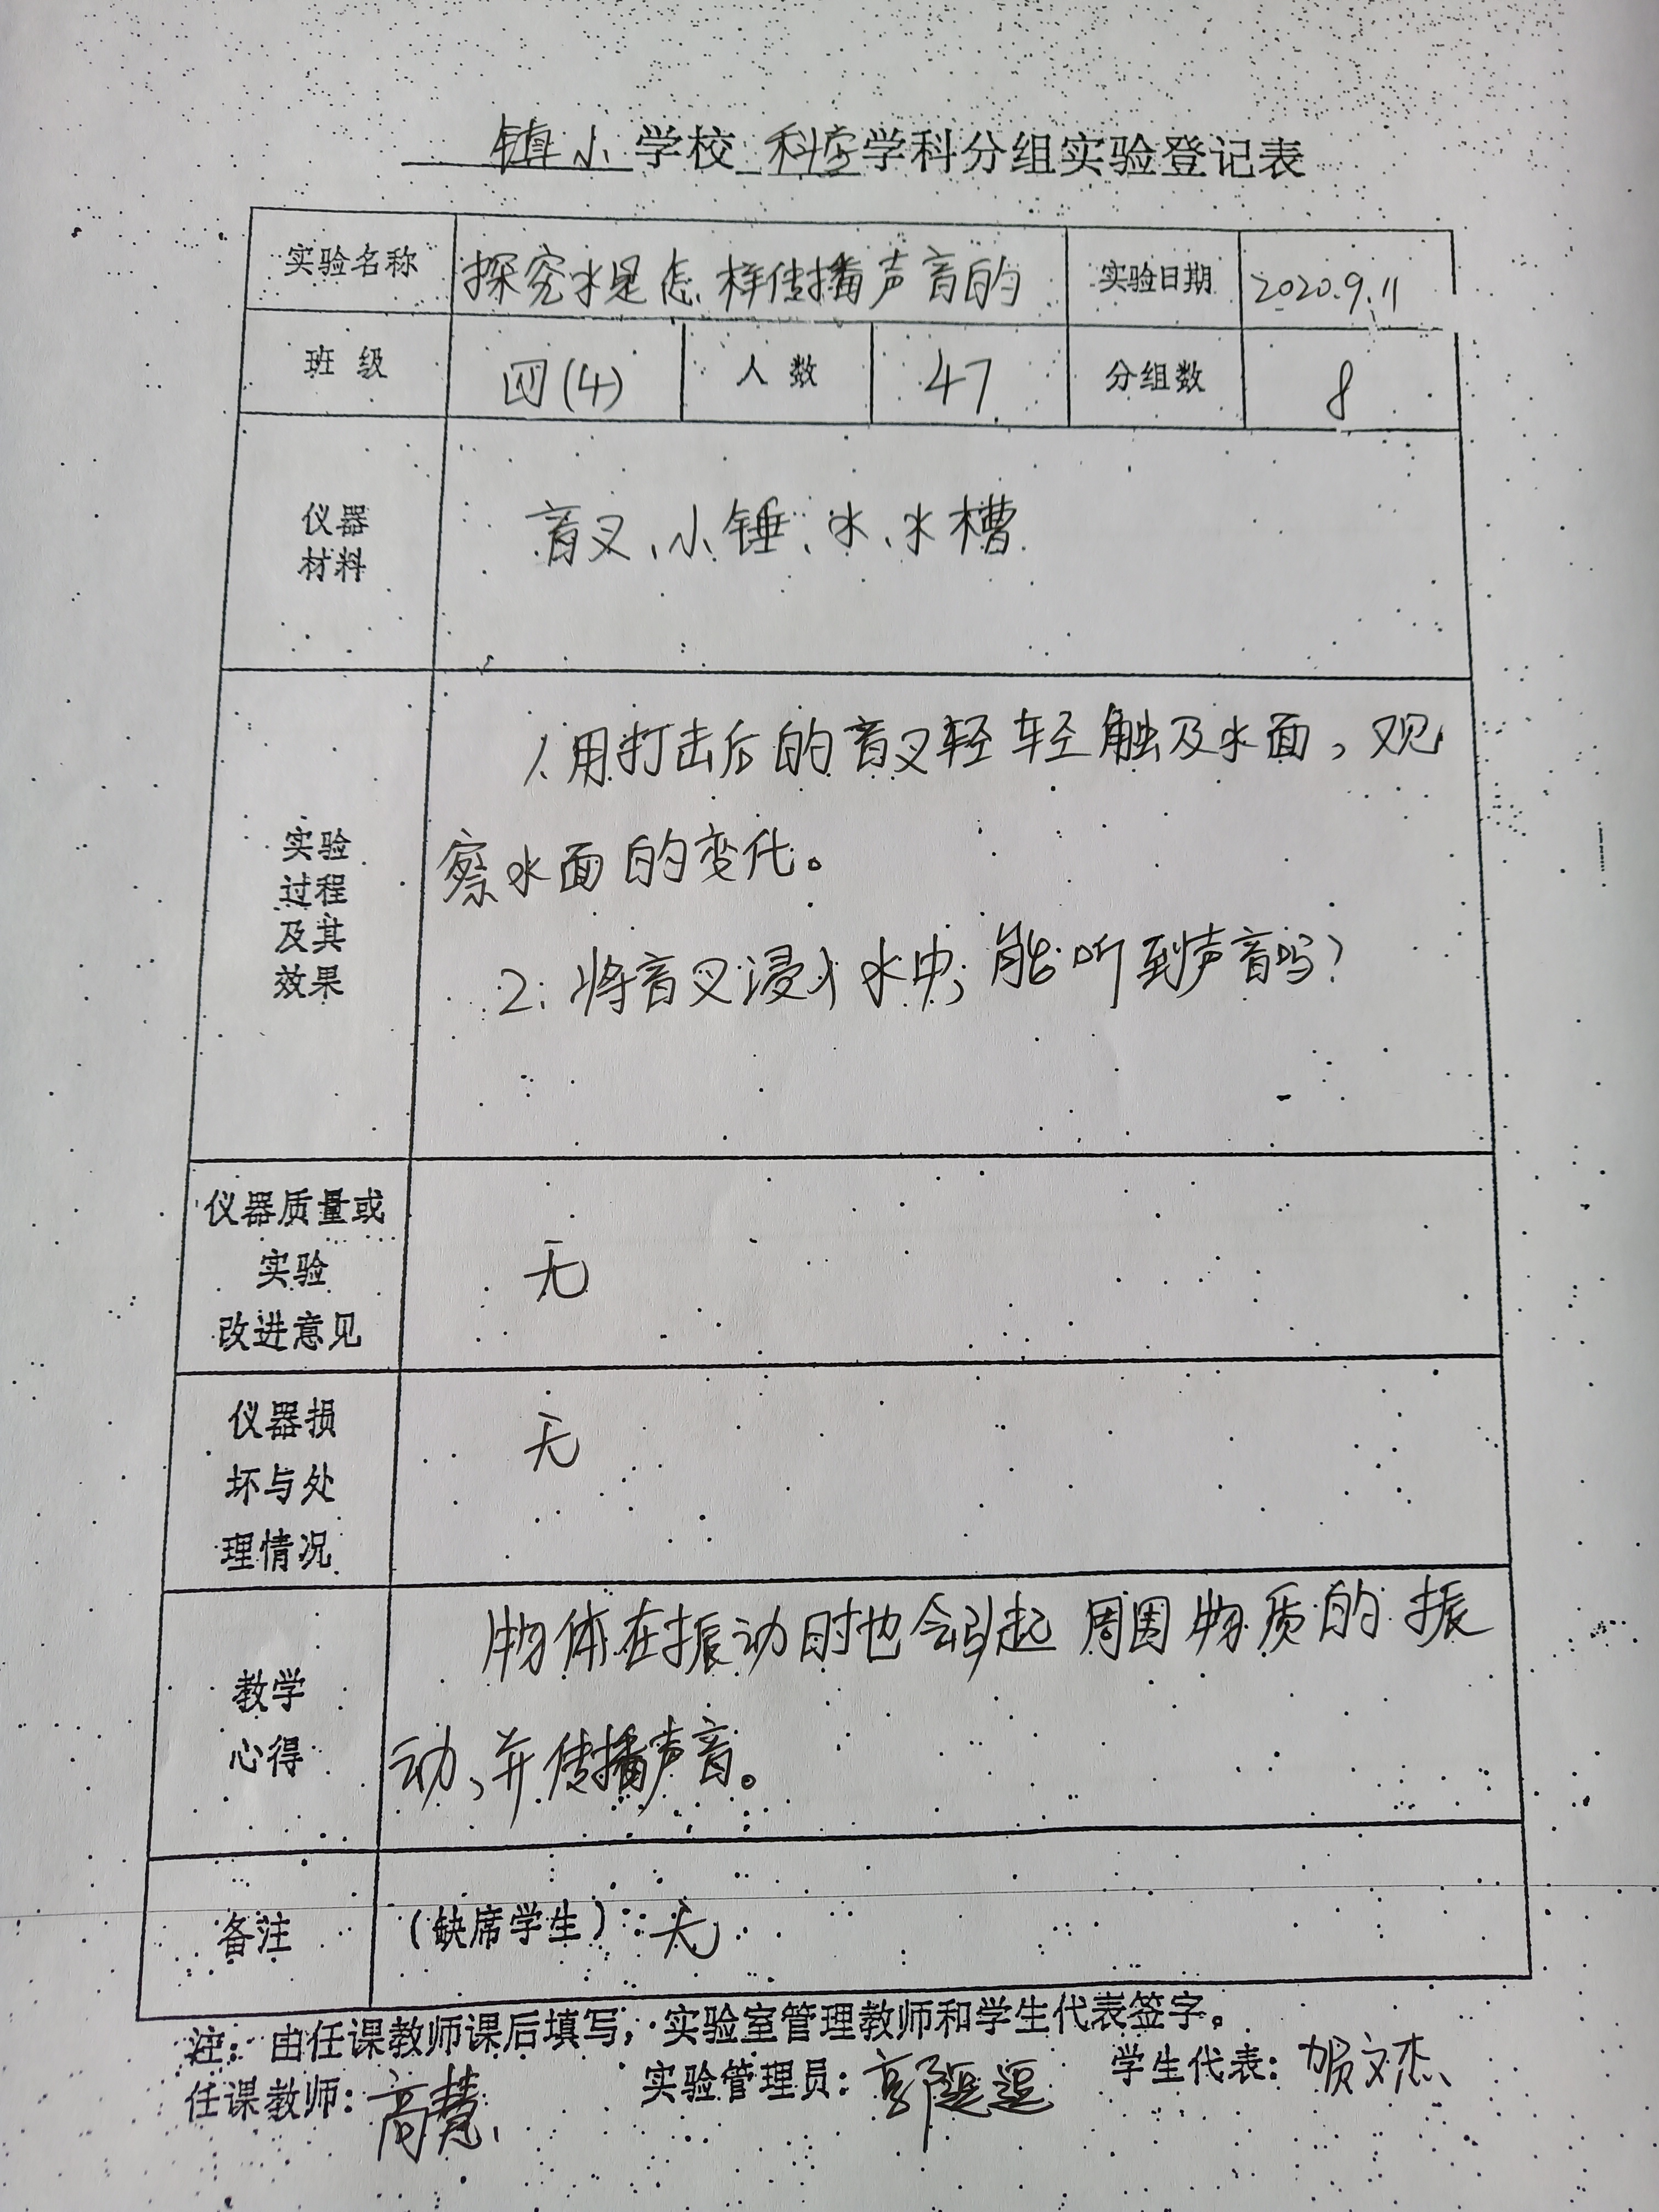 镇小学校科学学科分组实验登记表
实验名称 探究水是怎样传播声音的 实验日期 2020.9.11
班级 四(4) 人数 47 分组数 8
仪器
材料
音叉、小锤、水、水槽
实验
过程
及其
效果
1.用打击后的音叉轻轻触及水面,观
察水面的变化。
2.将音叉浸入水中,能听到声音吗?
仪器质量或
实验
改进意见
无
仪器损
坏与处
理情况
无
教学
心得
物体在振动时也会引起周围物质的振
动,并传播声音。
备注 (缺席学生):无
注:由任课教师课后填写,实验室管理教师和学生代表签字。
任课教师:高慧 实验管理员:郭 学生代表:贺文杰